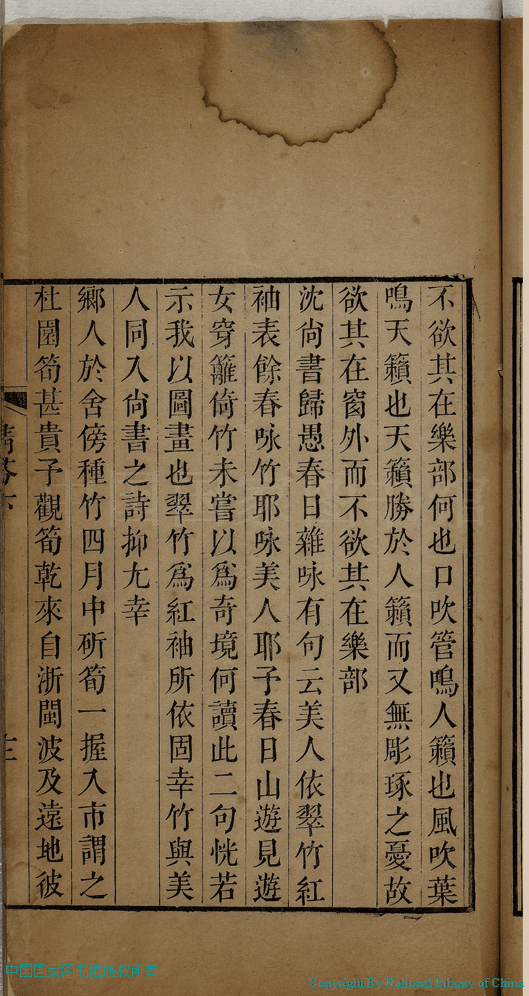 不欲其在樂部何也口吹管鳴人籟也風吹葉
鳴天籟也天籟勝於人籟而又無彫琢之憂故
欲其在窗外而不欲其在樂部
沈尙書歸愚春日雜咏有句云美人依翠竹紅
袖表餘春咏竹耶咏美人耶子春日山遊見遊
女穿籬倚竹未嘗以爲奇境何讀此二句恍若
示我以圖畫也翠竹爲紅袖所依固幸竹與美
人同入尙書之詩抑尢幸
鄉人於舍傍種竹四月中斫筍一握入市謂之
杜園筍甚貴子觀筍乾來自浙閩波及遠地彼
Copyright By National Library of China